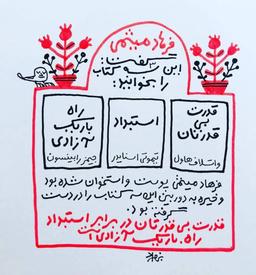 فرهاد میثمی
گفت
این ۳ کتاب
را بخوانید:
قدرت
بی
قدرتان
واتسلاف هاول
استبداد
تیموتی اسنایدر
راه
باریک
آزادی
جیمز رابینسون
فرهاد میثمی پوست و استخوان شده بود
و خیره به دوربین این سه کتاب را در دست
گرفته بود.
قدرت بی قدرتان در برابر استبداد
راه باریک آزادی است